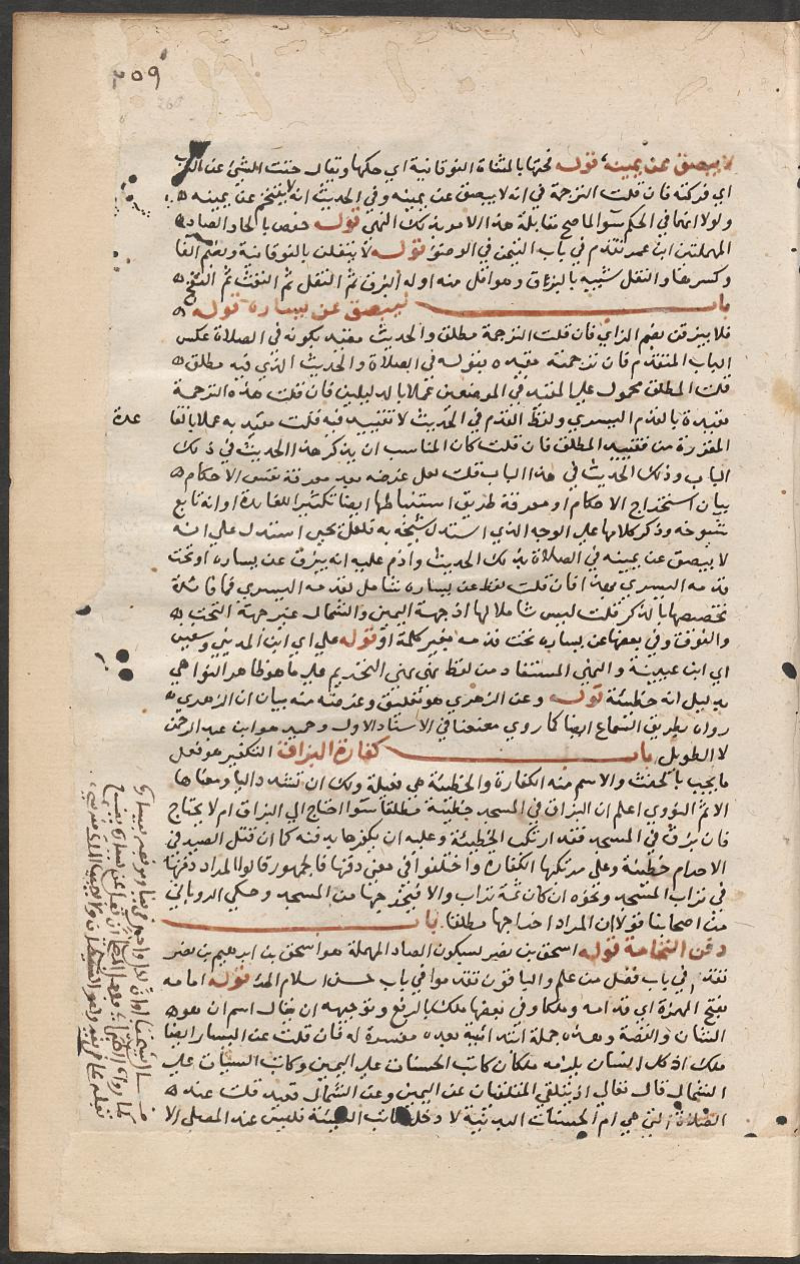 ٢٥٩
لا يبصق عن يمينه، قوله فحتها بالمثناة الفوقانية اي حكها ويقال حتت الشئ عن الثوب
اي فركته فان قلت الترجمة في انه لا يبصق عن يمينه وفي الحديث انه لا يتنخم عن يمينه
ولولا انهما في الحكم سوا لما صح مقابلة هذا الامر بذلك النهي قوله حفص بالحا والصاد
المهملتين ابن عمر تقدم في باب التيمن في الوضوء قوله لا يتفلن بالفوقانية وبضم الفا
وكسرها والتفل شبيه بالبزاق وهو اقل منه اوله البزق ثم التفل ثم النفث ثم النفخ
باب ليبصق عن يساره قوله
فلا يبزقن بضم الزاي فان قلت الترجمة مطلق والحديث مقيد بكونه في الصلاة عكس
الباب المتقدم فان ترجمته مقيدة بقوله في الصلاة والحديث الذي فيه مطلق
قلت المطلق محمول على المقيد في الموضعين عملا بالدليلين فان قلت هذه الترجمة
مقيدة بالقدم اليسري ولفظ القدم في الحديث لا تقييد فيه قلت مقيد به عملا بالقا
عدة
المقررة من تقييد المطلق فان قلت كان المناسب ان يذكر هذا الحديث في ذلك
الباب وذلك الحديث في هذا الباب قلت لعل غرضه بعد معرفة نفس الاحكام
بيان استخراج الاحكام او معرفة طريق استنباطها ايضا تكثيرا للفايدة او انه تابع
شيوخه وذكر كلامها علي الوجه الذي استدل شيخه به فلعل يحيي استدل علي انه
لا يبصق عن يمينه في الصلاة بذلك الحديث وادم عليه انه يبزق عن يساره او تحت
قدمه اليسري فان قلت لفظ عن يساره شامل لقدمه اليسري فما فائدة
تخصيصها بالذكر قلت ليس شاملا لها اذ جهة اليمين والشمال غير جهة التحت
والفوق وفي بعضها عن يساره تحت قدمه بغير كلمة او قوله علي اي ابن المديني وسفين
اي ابن عيينة والنهي المستفاد من لفظ نهي يعني التحريم علي ما هو ظاهر النواهي
بدليل انه خطيئة قوله وعن الزهري هو تعليق وغرضه منه بيان ان الزهري
رواه بطريق السماع ايضا كما روي معنعنا في الاسناد الاول وحميد هو ابن عبد الرحمن
لا الطويل باب كفارة البزاق التكفير هو فعل
ما يجب بالحنث والاسم منه الكفارة والخطيئة هي فعيلة ولك ان تشدد اليا ومعناها
الاثم النووي اعلم ان البزاق في المسجد خطيئة مطلقا سوا احتاج الي البزاق ام لا يحتاج
فان بزق في المسجد فقد ارتكب الخطيئة وعليه ان يكفرها بدفنه كما ان قتل الصيد في
الاحرام خطيئة وعلي مرتكبها الكفارة واختلفوا في معني دفنها فالجمهور قالوا المراد دفنها
في تراب المسجد ونحوه ان كان ثمة تراب والا فيخرجها من المسجد وحكي الروياني
من اصحابنا قولا ان المراد اخراجها مطلقا باب
دفن النخامة قوله اسحق بن نصر بسكون الصاد المهملة هو اسحق بن ابرهيم بن نصر
تقدم في باب فضل من علم والباقون تقدموا في باب حسن اسلام المرء قوله امامه
بفتح الهمزة اي قدامه وملكا وفي بعضها ملك بالرفع وتوجيهه ان يقال اسم ان هو
الشان والقصة وهذه جملة ابتدائية بعده مفسرة له فان قلت عن اليسار ايضا
ملك اذ كل انسان يلزمه ملكان كاتب الحسنات علي اليمين وكاتب السيئات علي
الشمال قال تعالي اذ يتلقي المتلقيان عن اليمين وعن الشمال قعيد قلت عند
الصلاة التي هي ام الحسنات البدنية لا دخل لكاتب السيئة فليس عند المصلي الا